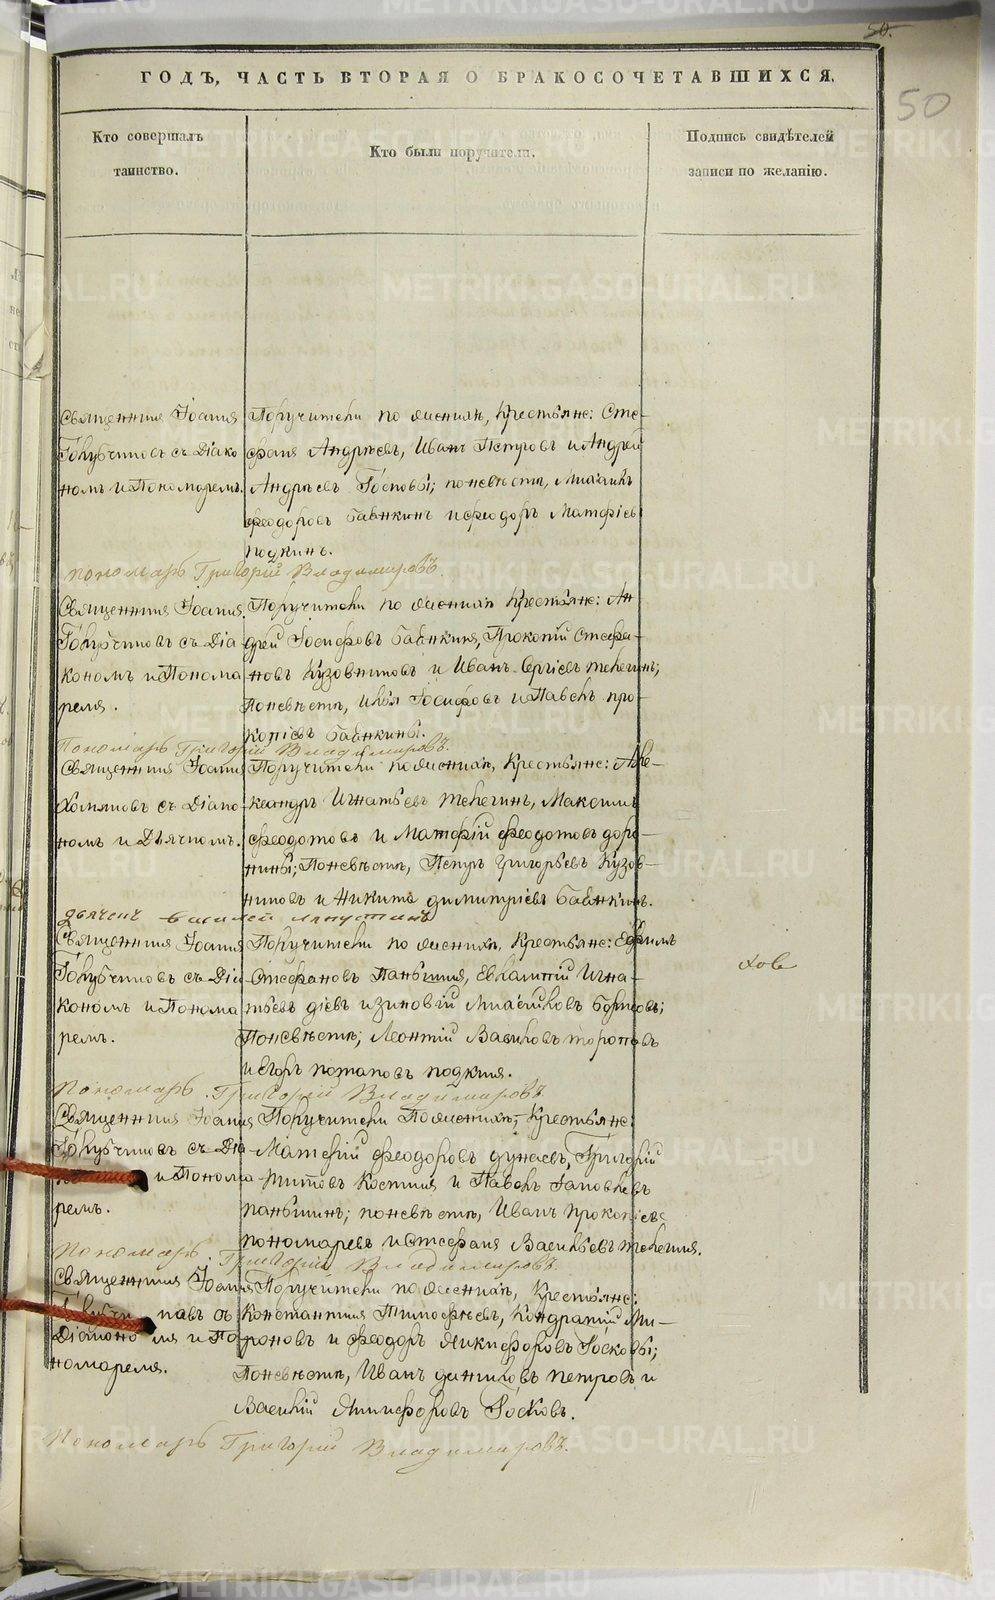 50.
50
ГОДЪ, ЧАСТЬ ВТОРАЯ О БРАКОСОЧЕТАВШИХСЯ.
Кто совершалъ
таинство.
Кто были поручители.
Подпись свидѣтелей
записи по желанію.
Священникъ Іоаннъ
Голубчиковъ съ Діако
номъ и Пономаремъ.
Поручители по женихѣ, Крестьяне: Сте-
фанъ Андрѣевъ, Иванъ Петровъ и Андрей
Андрѣевъ; по невѣстѣ, Михаилъ
Феодоровъ Бабкинъ и Феодоръ Матфіевъ
Пономарь Григорій Владимировъ.
Священникъ Іоаннъ
Голубчиковъ съ Діа
кономъ и Понома
ремъ.
Поручители по женихѣ Крестьяне: Ан
дрей Іосифовъ Бабкинъ, Прокопій Стефа-
новъ Кузовниковъ и Иванъ Сергіевъ Телегинъ;
По невѣстѣ, Илья Іосифовъ и Павелъ Про-
копіевъ Бабкины.
Пономарь Григорій Владимировъ.
Священникъ Іоаннъ
Хомяковъ съ Діако-
номъ и Дьячкомъ.
Поручители по женихѣ, Крестьяне: Але-
ксандръ Игнатьевъ Телегинъ, Максимъ
Феодотовъ и Матфій Феодотовъ Доро-
нины; По невѣстѣ, Петръ Григорьевъ Кузов-
никовъ и Никита Димитріевъ Бабкинъ.
Дьячекъ Василей Ляпустинъ
Священникъ Іоаннъ
Голубчиковъ съ Діа
кономъ и Понома
ремъ.
Поручители по женихѣ, Крестьяне: Ефимъ
Стефановъ Паньшинъ, Евлампій Игна-
тьевъ и Зиновій
По невѣстѣ; Леонтій Васильевъ Тороповъ
и Егоръ Потаповъ
Пономарь Григорій Владимировъ
Священникъ Іоаннъ
Голубчиковъ съ Діа
и Понома
ремъ.
Поручители По женихѣ, Крестьяне:
Матфій Феодоровъ Дунаевъ, Григорій
Титовъ Костинъ и Павелъ
Паньшинъ; по невѣстѣ, Иванъ Прокопіевъ
Пономаревъ и Стефанъ Васильевъ Телегинъ.
Пономарь Григорій Владимировъ.
Священникъ Іоаннъ
Діаконо и По
номаремъ.
Поручители по женихѣ, Крестьяне:
Константинъ Тимофѣевъ, Кондратій Ми-
роновъ и Феодоръ Никифоровъ Госковы;
По невѣстѣ, Иванъ Даниловъ Петровъ и
Василій Никифоровъ Госковъ.
Пономарь Григорій Владимировъ.
METRIKI.GASO-URAL.RU